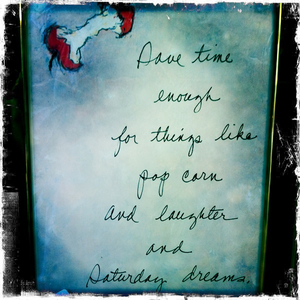 Save time
enough
for things like
pop corn
And laughter
and
Saturday dreams.